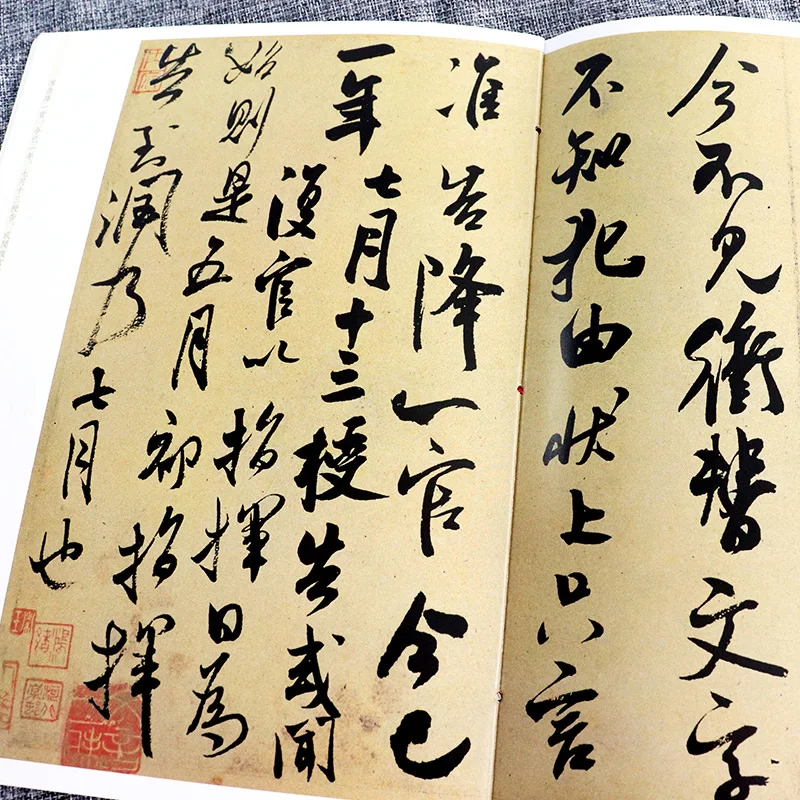 今不見衝替文字
不知犯由狀上只言
准告降一官今已
一年七月十三授告或聞
復官以指揮日為
始則是五月初指揮
告至潤乃七月也